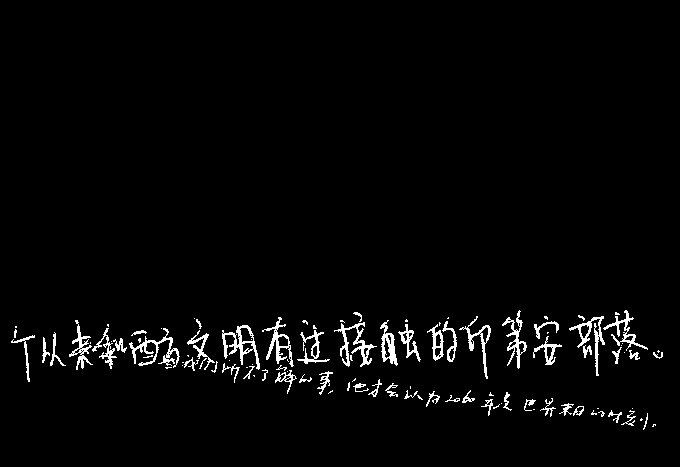 个从来和西方文明有过接触的印第安部落。
为我们所不了解的事,他才会认为2060年是世界末日的时刻。